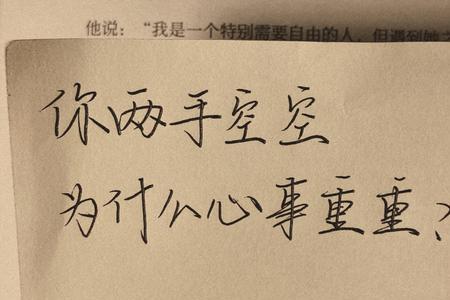 他说：“我是一个特别需要自由的人，但遇到她之
你两手空空
为什么心事重重？